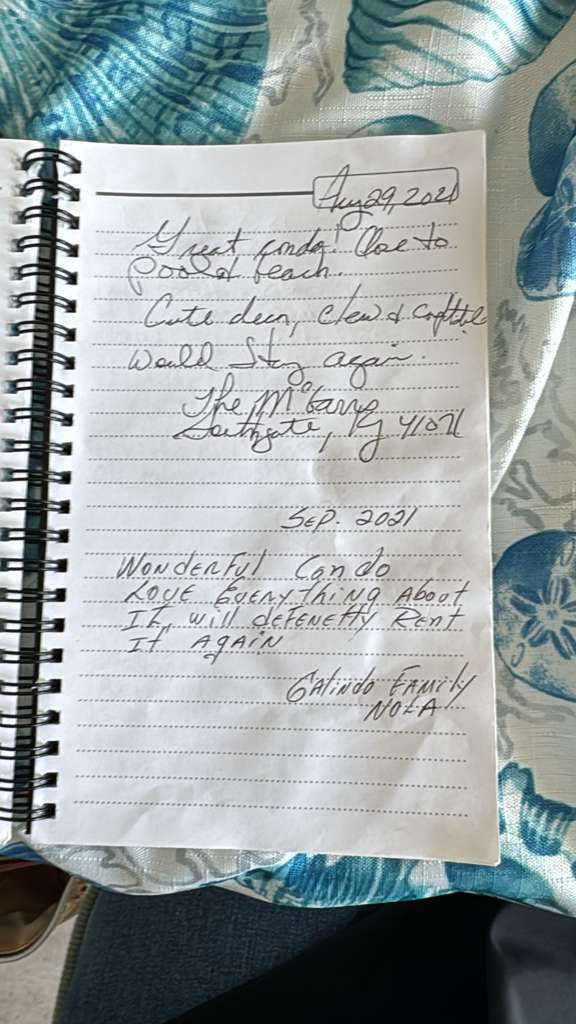 Aug 29, 2021
Great condo! Close to
pool & beach.
Cute decor, clean &
Would stay again.
The
Southgate, Ky 41071
Sep. 2021
WONDERFUL CONDO
LOVE EVERYTHING ABOUT
IT, WILL DEFENETLY RENT
IT AGAIN
GALINDO FAMILY
NOLA